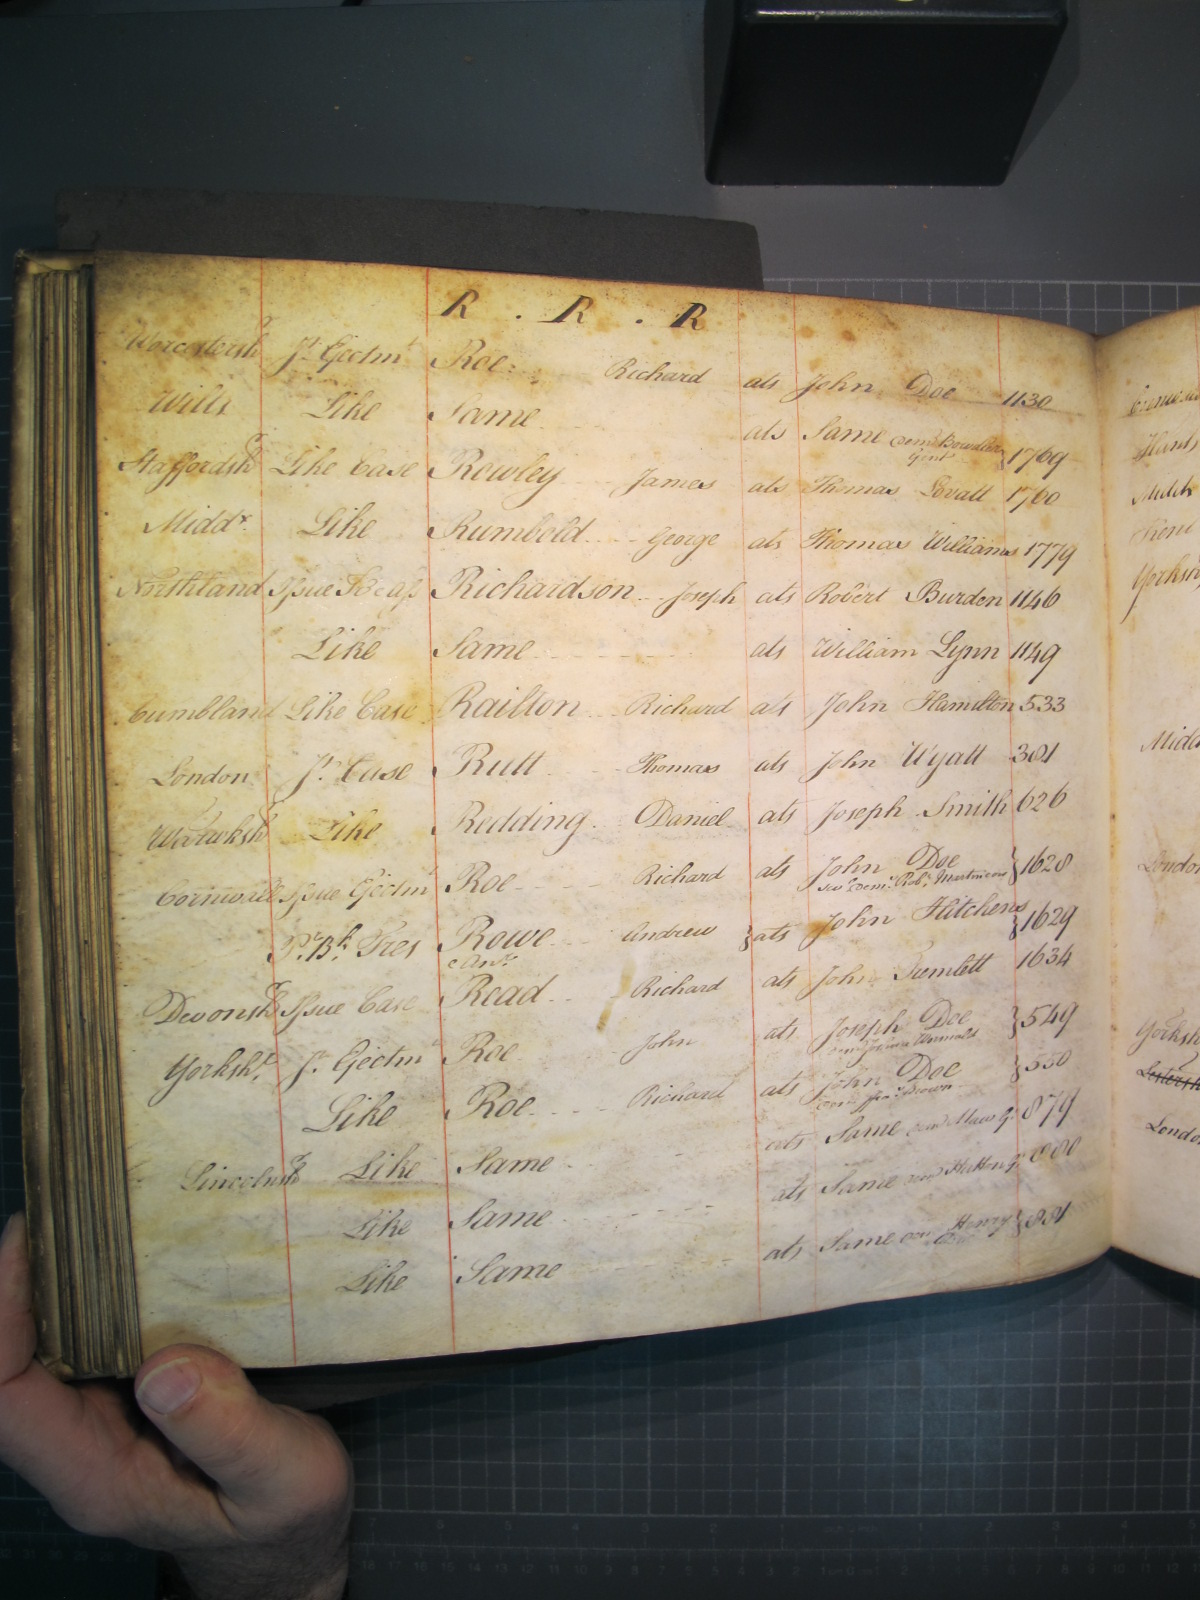 R . R . R
Worcestersh Jt. Ejectmt Roe Richard ats John Doe 1130
Wilts Like Same ats Same dem Bowdler Gent 1769
Staffordsh Like Case Rowley James ats Thomas Lovatt 1760
Middx. Like Rumbold George ats Thomas Williams 1779
Northland Issue Richardson Joseph ats Robert Burden 1146
Like Same ats William Lynn 1149
Cumbland Like Case Railton Richard ats John Hamilton 533
London Jt. Case Rutt Thomas ats John Wyatt 381
Warwksh Like Redding Daniel ats Joseph Smith 626
Cornwall Issue Ejectmt Roe Richard ats John Doe 1628
sev Demes Robt.
Pt. Bk. Tres Rowe Andrew ats John Hitchens 1629
Devonsh Issue Case Read Richard ats John 1634
Yorksh. Jt. Ejectmt Roe John ats Joseph Doe 549
Like Roe Richard ats John Doe 550
dem Brown
Lincolnsh Like Same ats Same dem Maw G. 879
Like Same ats Same dem Hutton G. 880
Like Same ats Same dem Henry 881
Hants
Middx
Kent
Yorksh
Midd
London
Yorksh
Londo